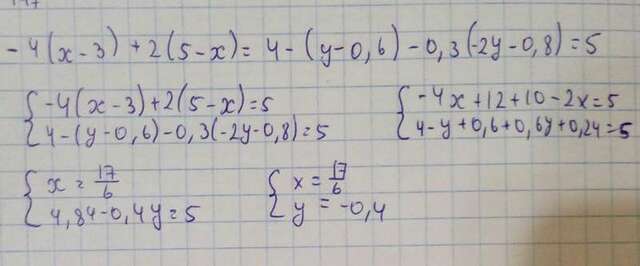 -4(x-3)+2(5-x)=4-(y-0,6)-0,3(-2y-0,8)=5
{-4(x-3)+2(5-x)=5
4-(y-0,6)-0,3(-2y-0,8)=5
{-4x+12+10-2x=5
4-y+0,6+0,6y+0,24=5
{x=17/6
4,84-0,4y=5
{x=17/6
y=-0,4